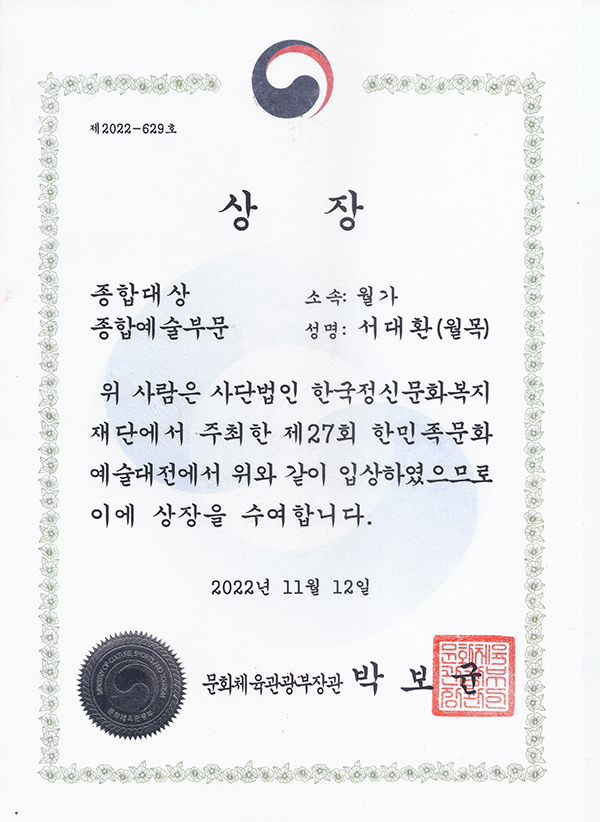 제2022-629호
상 장
종합대상 소속: 월가
종합예술부문 성명: 서대환(월목)
위 사람은 사단법인 한국정신문화복지
재단에서 주최한 제27회 한민족문화
예술대전에서 위와 같이 입상하였으므로
이에 상장을 수여합니다.
2022년 11월 12일
MINISTRY OF CULTURE, SPORTS AND TOURISM
문화체육관광부
문화체육관광부장관 박보균